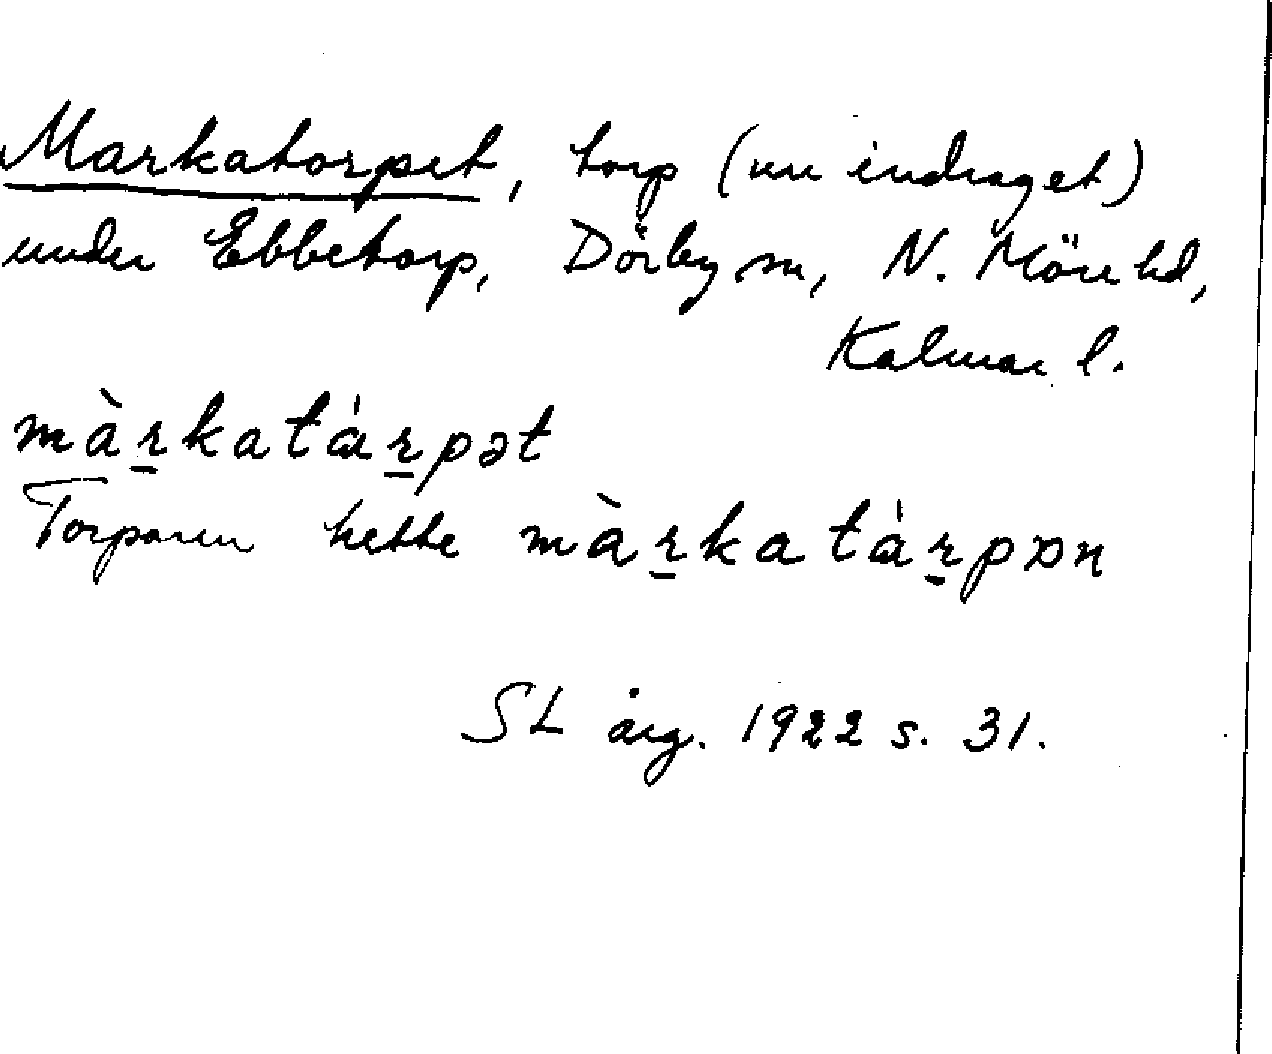 Markatorpet, torp (nu indraget)
under Ebbetorp, Dörby sn, N. Möre hd,
Kalmar l.
màr̠katár̠pət
Torparen hette màr̠katár̠pɒn
SL årg. 1922 s. 31.